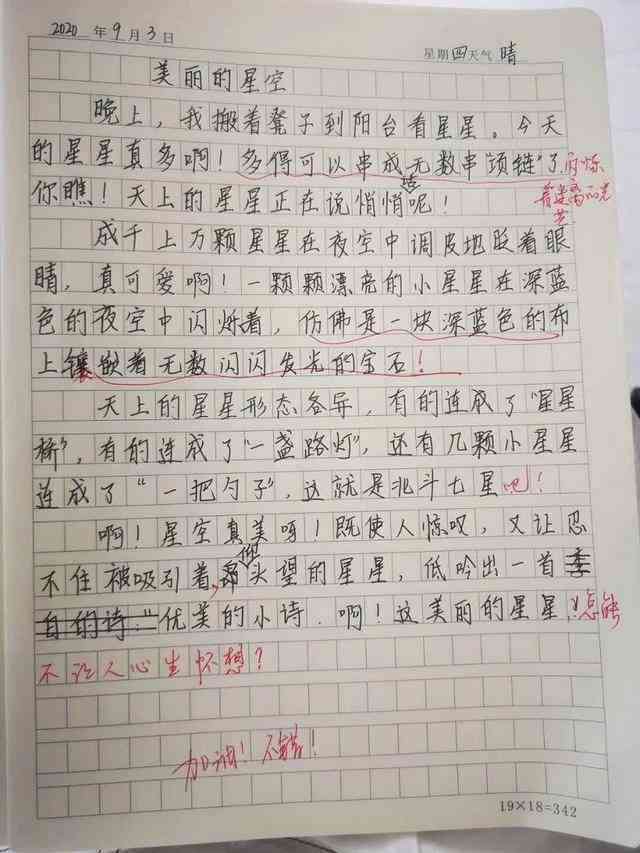 2020 年 9 月 3 日
星期 四 天气 晴
美丽的星空
晚上，我搬着凳子到阳台看星星。今天
的星星真多啊！多得可以串成无数串“项链”了，闪烁
你瞧！天上的星星正在说悄悄话呢！
着
成千上万颗星星在夜空中调皮地眨着眼
睛，真可爱啊！一颗颗漂亮的小星星在深蓝
色的夜空中闪烁着，仿佛是一块深蓝色的布
上镶嵌着无数闪闪发光的宝石！
天上的星星形态各异，有的连成了“星星
桥”，有的连成了“一盏路灯”，还有几颗小星星
连成了“一把勺子”，这就是北斗七星吧！
啊！星空真美呀！既使人惊叹，又让忍
不住被吸引着，仰头望的星星，低吟出一首
自的诗。“优美的小诗．啊！这美丽的星星，怎能
不让人心生怀想？
加油！不错！
19×18=342